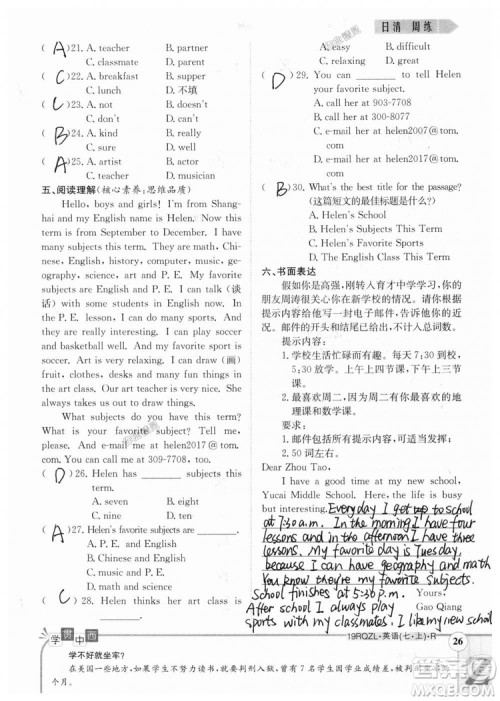 日清 周练
( A )21. A. teacher B. partner
C. classmate D. parent
( C )22. A. breakfast B. lunch
C. supper D. 不填
( C )23. A. not B. doesn't
C. don't D. can't
( B )24. A. kind B. really
C. sure D. nice
( A )25. A. artist B. actor
C. teacher D. musician
五、阅读理解(核心素养:思维品质)
Hello, boys and girls! I'm from Shang-
hai and my English name is Helen. Now this
term is from September to December. I have
many subjects this term. They are math, Chi-
nese, English, history, biology, music, ge-
ography, science, art and P. E. My favorite
subjects are English and P. E. I can talk (谈
话) with some students in English now. In
the P. E. lesson, I can play soccer and play
basketball, but I can't play volleyball. Music
is very relaxing. I can draw (画) apples,
fruit, clothes, desks, trees and so on in the
art class. My art teacher is very nice. She
makes our art class very interesting.
What subjects do you have this term?
What is your favorite subject? Please let me
know! And e-mail me at helen2017@tom.
com. Or you can call me at 309-7708.
( D )26. Helen has subjects this
term.
A. seven B. eight
C. nine D. ten
( A )27. Helen's favorite subjects are .
A. P. E. and English
B. Chinese and English
C. history and art
D. music and science
( D )28. Helen thinks her art class is
A. easy B. difficult
C. relaxing D. great
( D )29. You can tell Helen
your favorite subject.
A. call her at 903-7708
B. call her at 309-7780
C. e-mail her at helen2007@tom.
com
D. e-mail her at helen2017@tom.
com
( B )30. What's the best title for the passage?
(这篇短文的最佳标题是什么?)
A. Helen's School
B. Helen's Subjects This Term
C. Helen's Favorite Sports
D. The English Class This Term
六、书面表达
假如你是高强,刚转入育才中学学习,你的
朋友周涛很关心你在新学校的情况。请根据
提示内容给他写一封电子邮件,告诉他你的
近况。邮件开头已给出,不计入总词数。
提示:
1. 学校生活忙碌而有趣。每天 7:30 到校,
上午上四节课,下午上三节课;
2. 最喜欢周二,因为周二有喜欢的地理和
数学课;
Dear Zhou Tao,
Yucai Middle School. Here my school life is
busy but interesting. Every day I get to school
at 7:30 a.m. In the morning I have four
lessons and in the afternoon I have three
lessons. My favorite day is Tuesday,
because I can have geography and math
You know they're my favorite subjects.
School finishes at 5:30 p.m. Yours,
After school I always play Gao Qiang
sports with my classmates. I like my new school!
学贯中西
19RQZL·英语(七·上)·R
26
学不好就坐牢?
在美国一些地方,如果学生不努力读书,就要判刑入狱,曾有 7 名学生因学业成绩差,被判
个月。